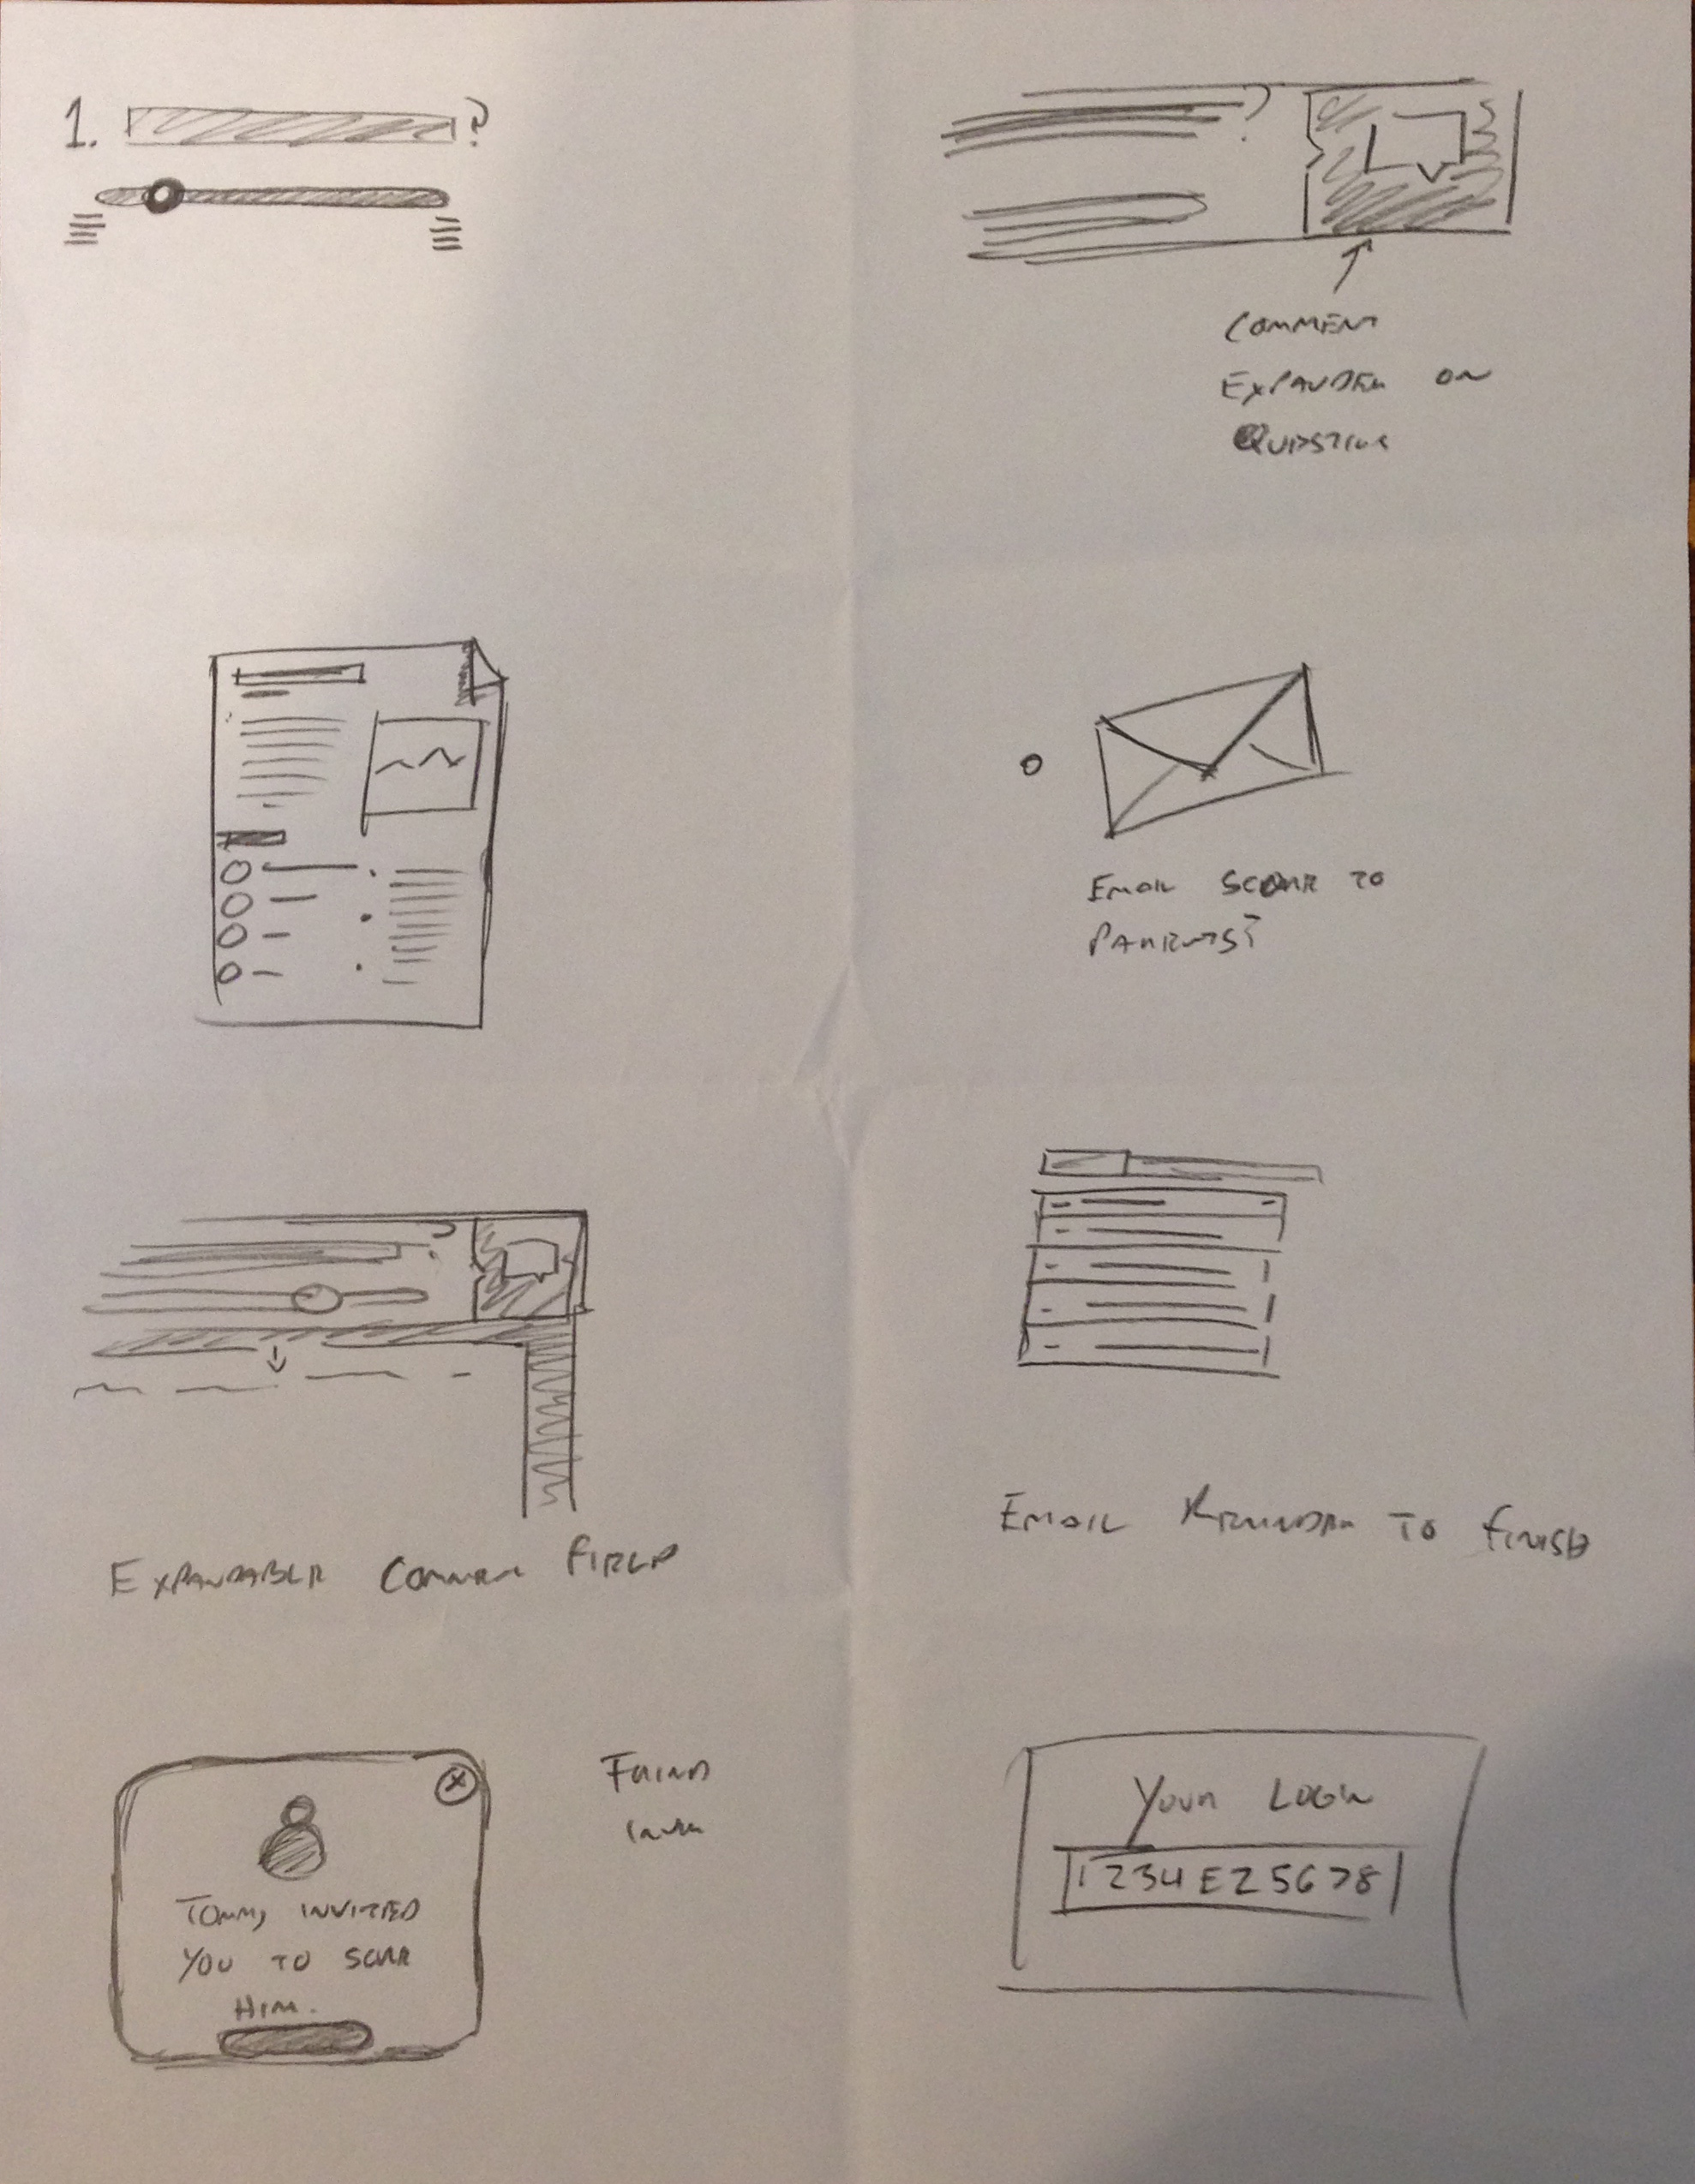 1. ?
?
COMMENT
EXPANDER ON
QUESTION
EMAIL SCORE TO
PARENTS?
EXPANDABLE COMMENT FIELD
EMAIL REMINDER TO FINISH
FRIEND
TOMMY INVITED
YOU TO SCORE
HIM.
YOUR LOGIN
1234EZ5678